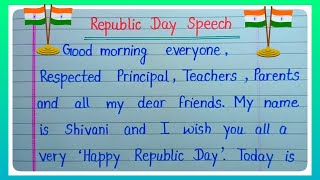 Republic Day Speech
Good morning everyone,
Respected Principal, Teachers, Parents
and all my dear friends. My name
is Shivani and I wish you all a
very 'Happy Republic Day'. Today is